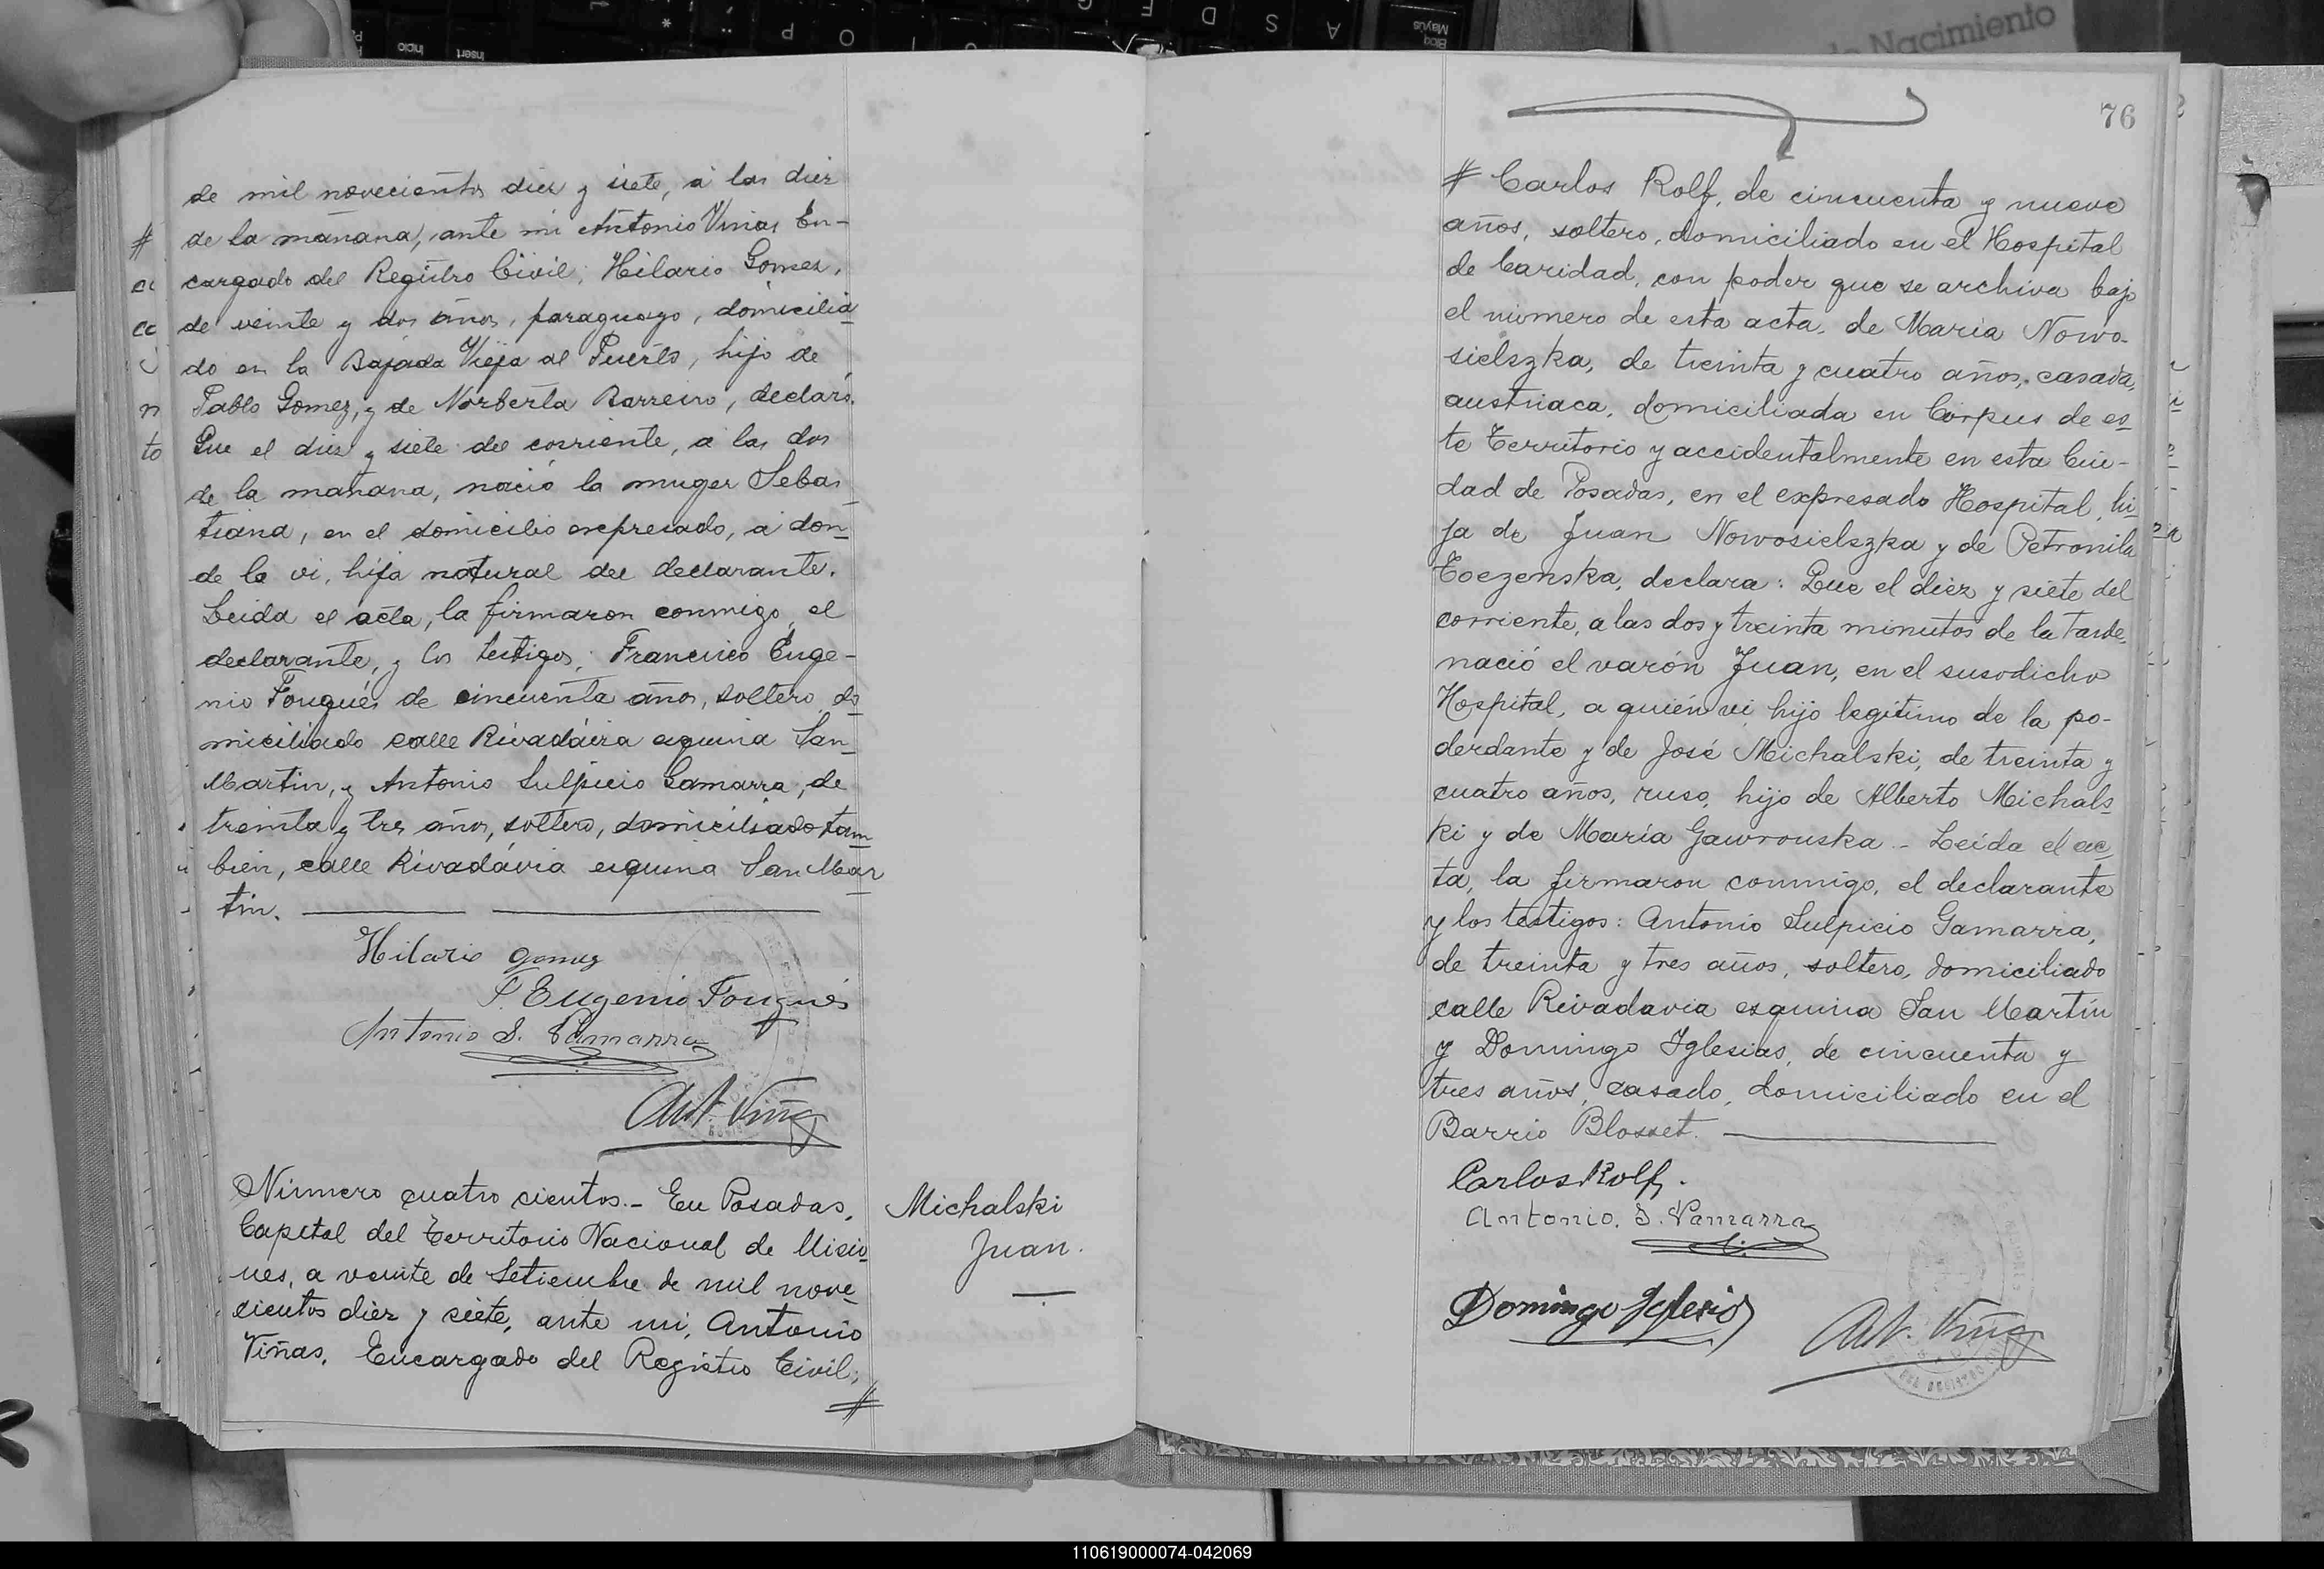 de Nacimiento
76
de mil novecientos diez y siete, á las diez
de la mañana, ante mi Antonio Viñas En-
cargado del Registro Civil, Hilario Gomez,
de veinte y dos años, paraguayo, domicilia
do en la Bajada Vieja al Puerto, hijo de
Pablo Gomez, y de Norberta Barreiro, declaró.
Que el diez y siete del corriente, a las dos
de la mañana, nació la muger Sebas
tiana, en el domicilio expresado, á don-
de la vi, hija natural del declarante.
Leida el acta, la firmaron conmigo, el
declarante, y los testigos, Francisco Euge-
nio Fouqués de cincuenta años, soltero, do
miciliado calle Rivadávia esquina San
Martin, y Antonio Sulpicio Gamarra, de
treinta y tres años, soltero, domiciliado tam
bien, calle Rivadávia esquina San Mar
tin.
Hilario gomez
F. Eugenio Fouqués
Antonio S. Gamarra
Ant. Viñas
Número cuatro cientos.- En Posadas,
Capital del Territorio Nacional de Misio
nes, a veinte de Setiembre de mil nove-
cientos diez y siete, ante mi, Antonio
Viñas, Encargado del Registro Civil;
#
Michalski
Juan.
# Carlos Rolf, de cincuenta y nueve
años, soltero, domiciliado en el Hospital
de Caridad, con poder que se archiva bajo
el número de esta acta, de Maria Nowo-
sielszka, de treinta y cuatro años, casada,
austriaca, domiciliada en Corpus de es
te Territorio y accidentalmente en esta Ciu-
dad de Posadas, en el expresado Hospital, hi-
ja de Juan Nowosielszka y de Petronila
Toezenska, declara: Que el diez y siete del
corriente, a las dos y treinta minutos de la tarde,
nació el varón Juan, en el susodicho
Hospital, a quién vi, hijo legítimo de la po-
derdante y de José Michalski, de treinta y
cuatro años, ruso, hijo de Alberto Michals
ki y de María Gawrouska.- Leída el ac
ta, la firmaron conmigo, el declarante
y los testigos: Antonio Sulpicio Gamarra,
de treinta y tres años, soltero, domiciliado
calle Rivadavia esquina San Martín
y Domingo Iglesias, de cincuenta y
tres años, casado, domiciliado en el
Barrio Blosset.
Carlos Rolf.
Antonio. S. Gamarra
Domingo Iglesias
Ant. Viñas
110619000074-042069